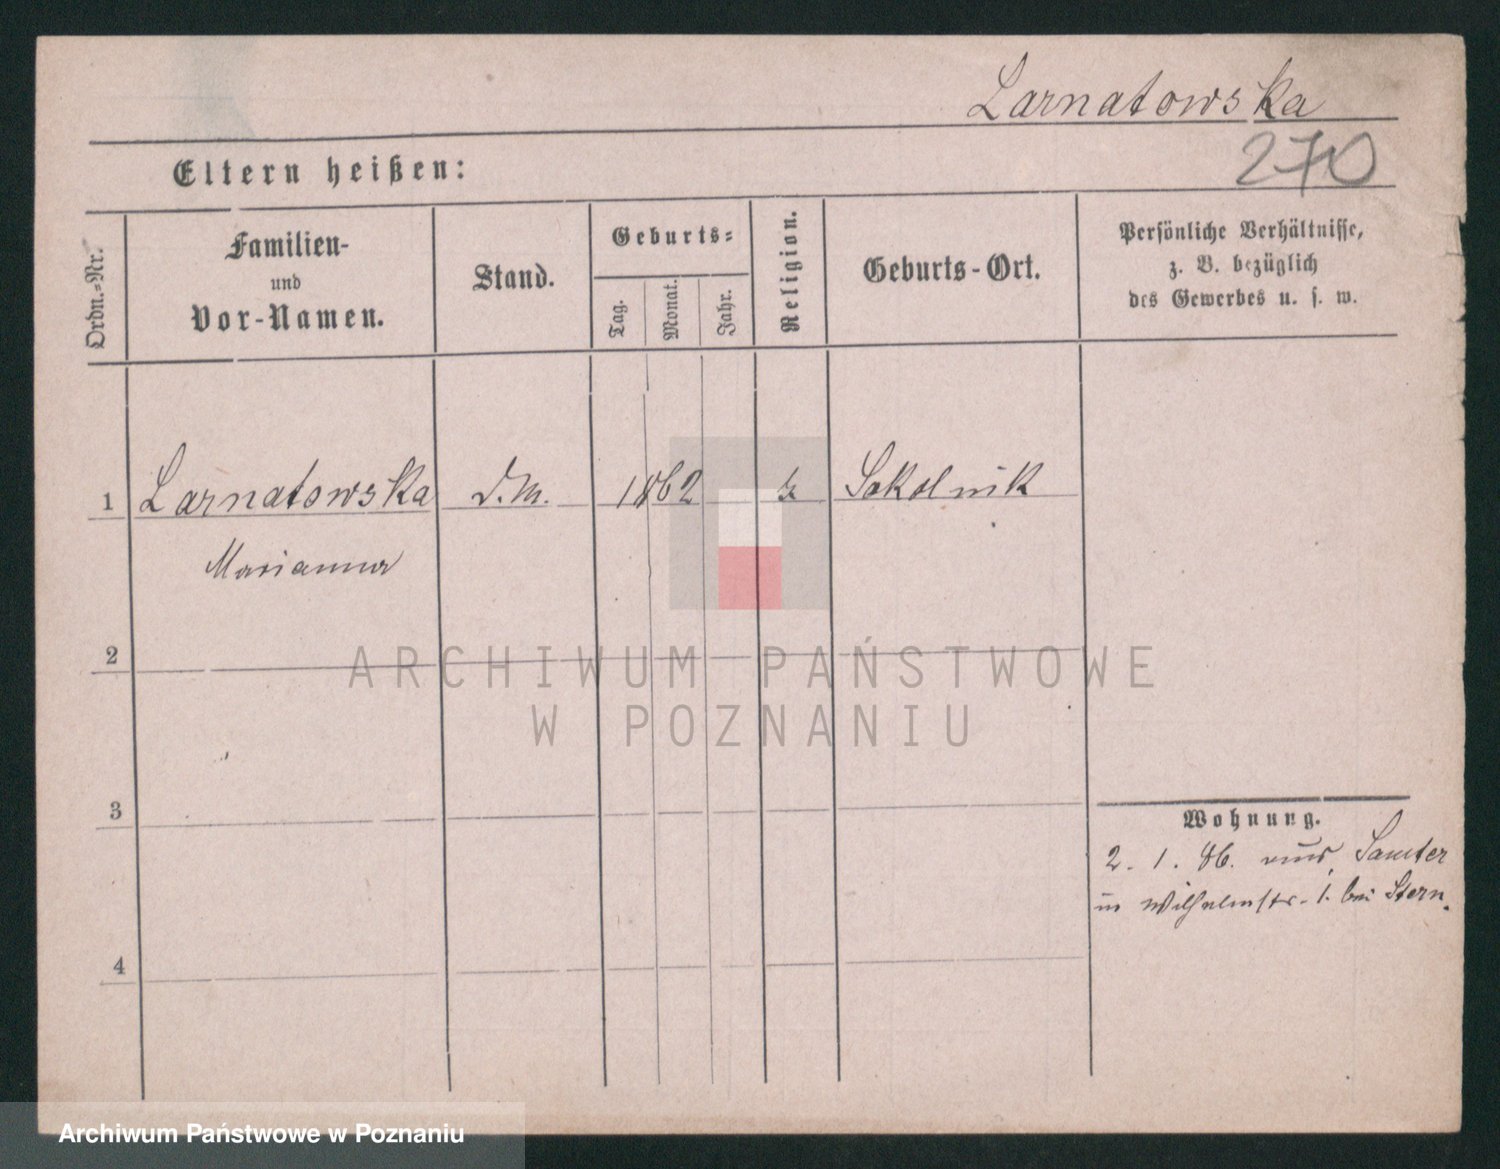 Larnatowska
270
Eltern heißen:
Ordn.-Nr.
Familien-
und
Vor-Namen.
Stand.
Geburts-
Tag.
Monat.
Jahr.
Religion.
Geburts-Ort.
Persönliche Verhältnisse,
z. B. bezüglich
des Gewerbes u. s. w.
1 Larnatowska d.M. 1862 Sokolnik
Marianna
2
ARCHIWUM PAŃSTWOWE
W POZNANIU
3
Wohnung.
2. 1. 86. aus Samter
in Wilhelmstr. 1. bei Stern.
4
Archiwum Państwowe w Poznaniu